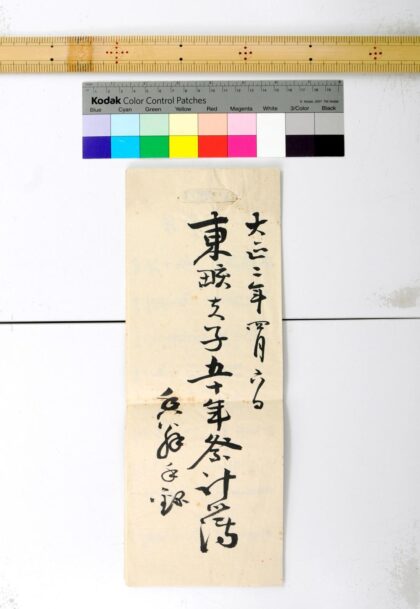 Kodak Color Control Patches
Blue Cyan Green Yellow Red Magenta White 3/Color Black
大正二年四月六日
東畡夫子五十年祭計簿
手録